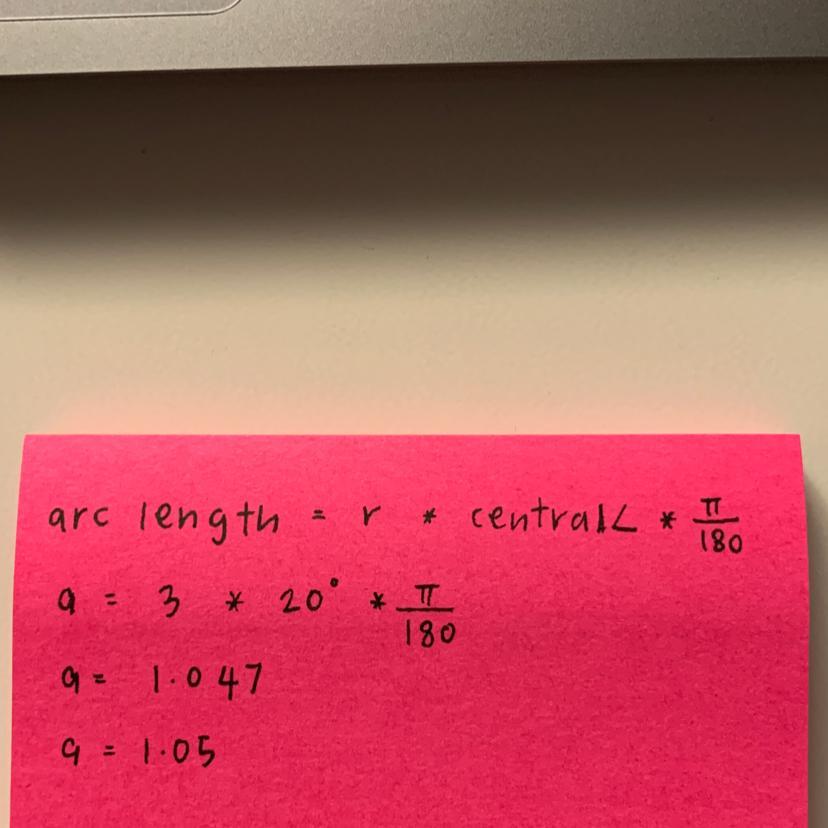 arc length = r * central∠ * π/180
a = 3 * 20° * π/180
a = 1.047
a = 1.05